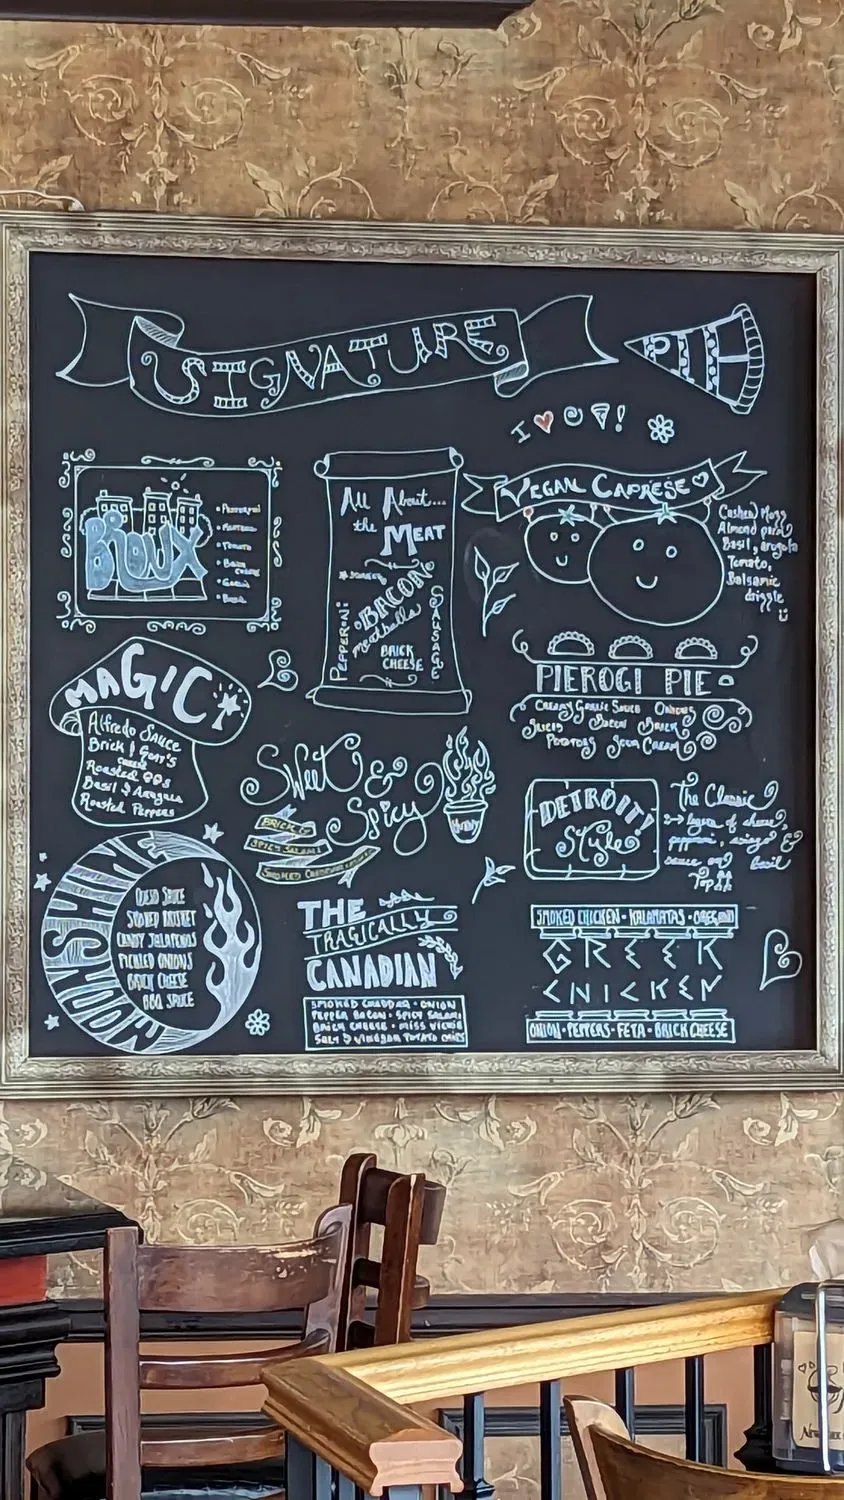 SIGNATURE
PIE
I !
BRONX
• Pepperoni
• Tomato
• Brick
Cheese
• Garlic
• Basil
All About...
the MEAT
BACON
meatballs
PEPPERONI
SAUSAGE
BRICK
CHEESE
VEGAN CAPRESE
Cashew Mozz
Almond parm
Basil, arugula
Tomato,
Balsamic
drizzle
MAGIC
Alfredo Sauce
Brick & Goat's
cheese
Roasted
Basil & Arugula
Roasted Peppers
PIEROGI PIE
Creamy Garlic Sauce Onions
Sliced Bacon Brick
Potatoes Sour Cream
Sweet &
Spicy
BRICK
SPICY SALAMI
SMOKED
HONEY
DETROIT!
Style
The Classic
layers of cheese,
pepperoni, asiago &
sauce on basil
Top
MOONSHINE
QUESO SAUCE
SMOKED BRISKET
CANDY JALAPENOS
PICKLED ONIONS
BRICK CHEESE
BBQ SAUCE
THE
TRAGICALLY
CANADIAN
SMOKED CHEDDAR • ONION
PEPPER BACON • SPICY SALAMI
BRICK CHEESE • MISS VICKIE
SALT & VINEGAR POTATO CHIPS
SMOKED CHICKEN • KALAMATAS • OREGANO
GREEK
CHICKEN
ONION • PEPPERS • FETA • BRICK CHEESE